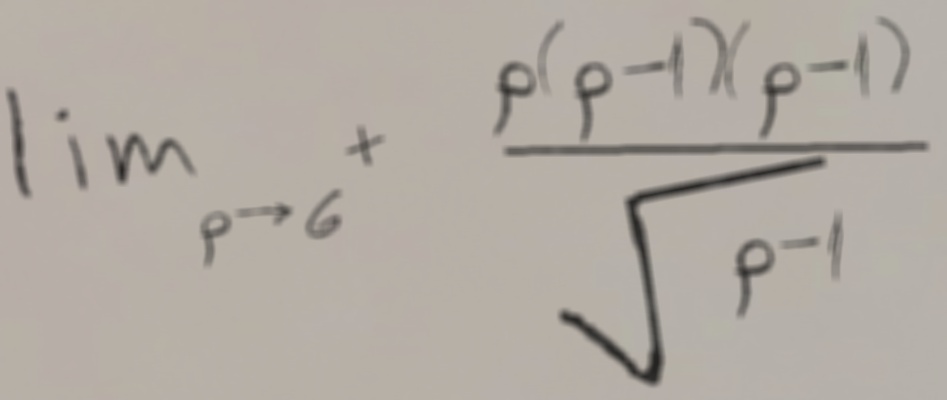 lim p→6⁺ p(p-1)(p-1) / √p-1